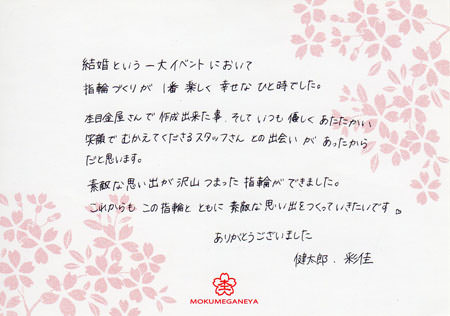 結婚という一大イベントにおいて
指輪づくりが 1番 楽しく 幸せな ひと時でした。
杢目金屋さんで作成出来た事、そして いつも 優しく あたたかい
笑顔で むかえてくださるスタッフさん との出会い が あったから
だと思います。
素敵な思い出が沢山 つまった 指輪ができました。
これからも この指輪と ともに 素敵な思い出をつくっていきたいです。
ありがとうございました
健太郎、彩佳
MOKUMEGANEYA